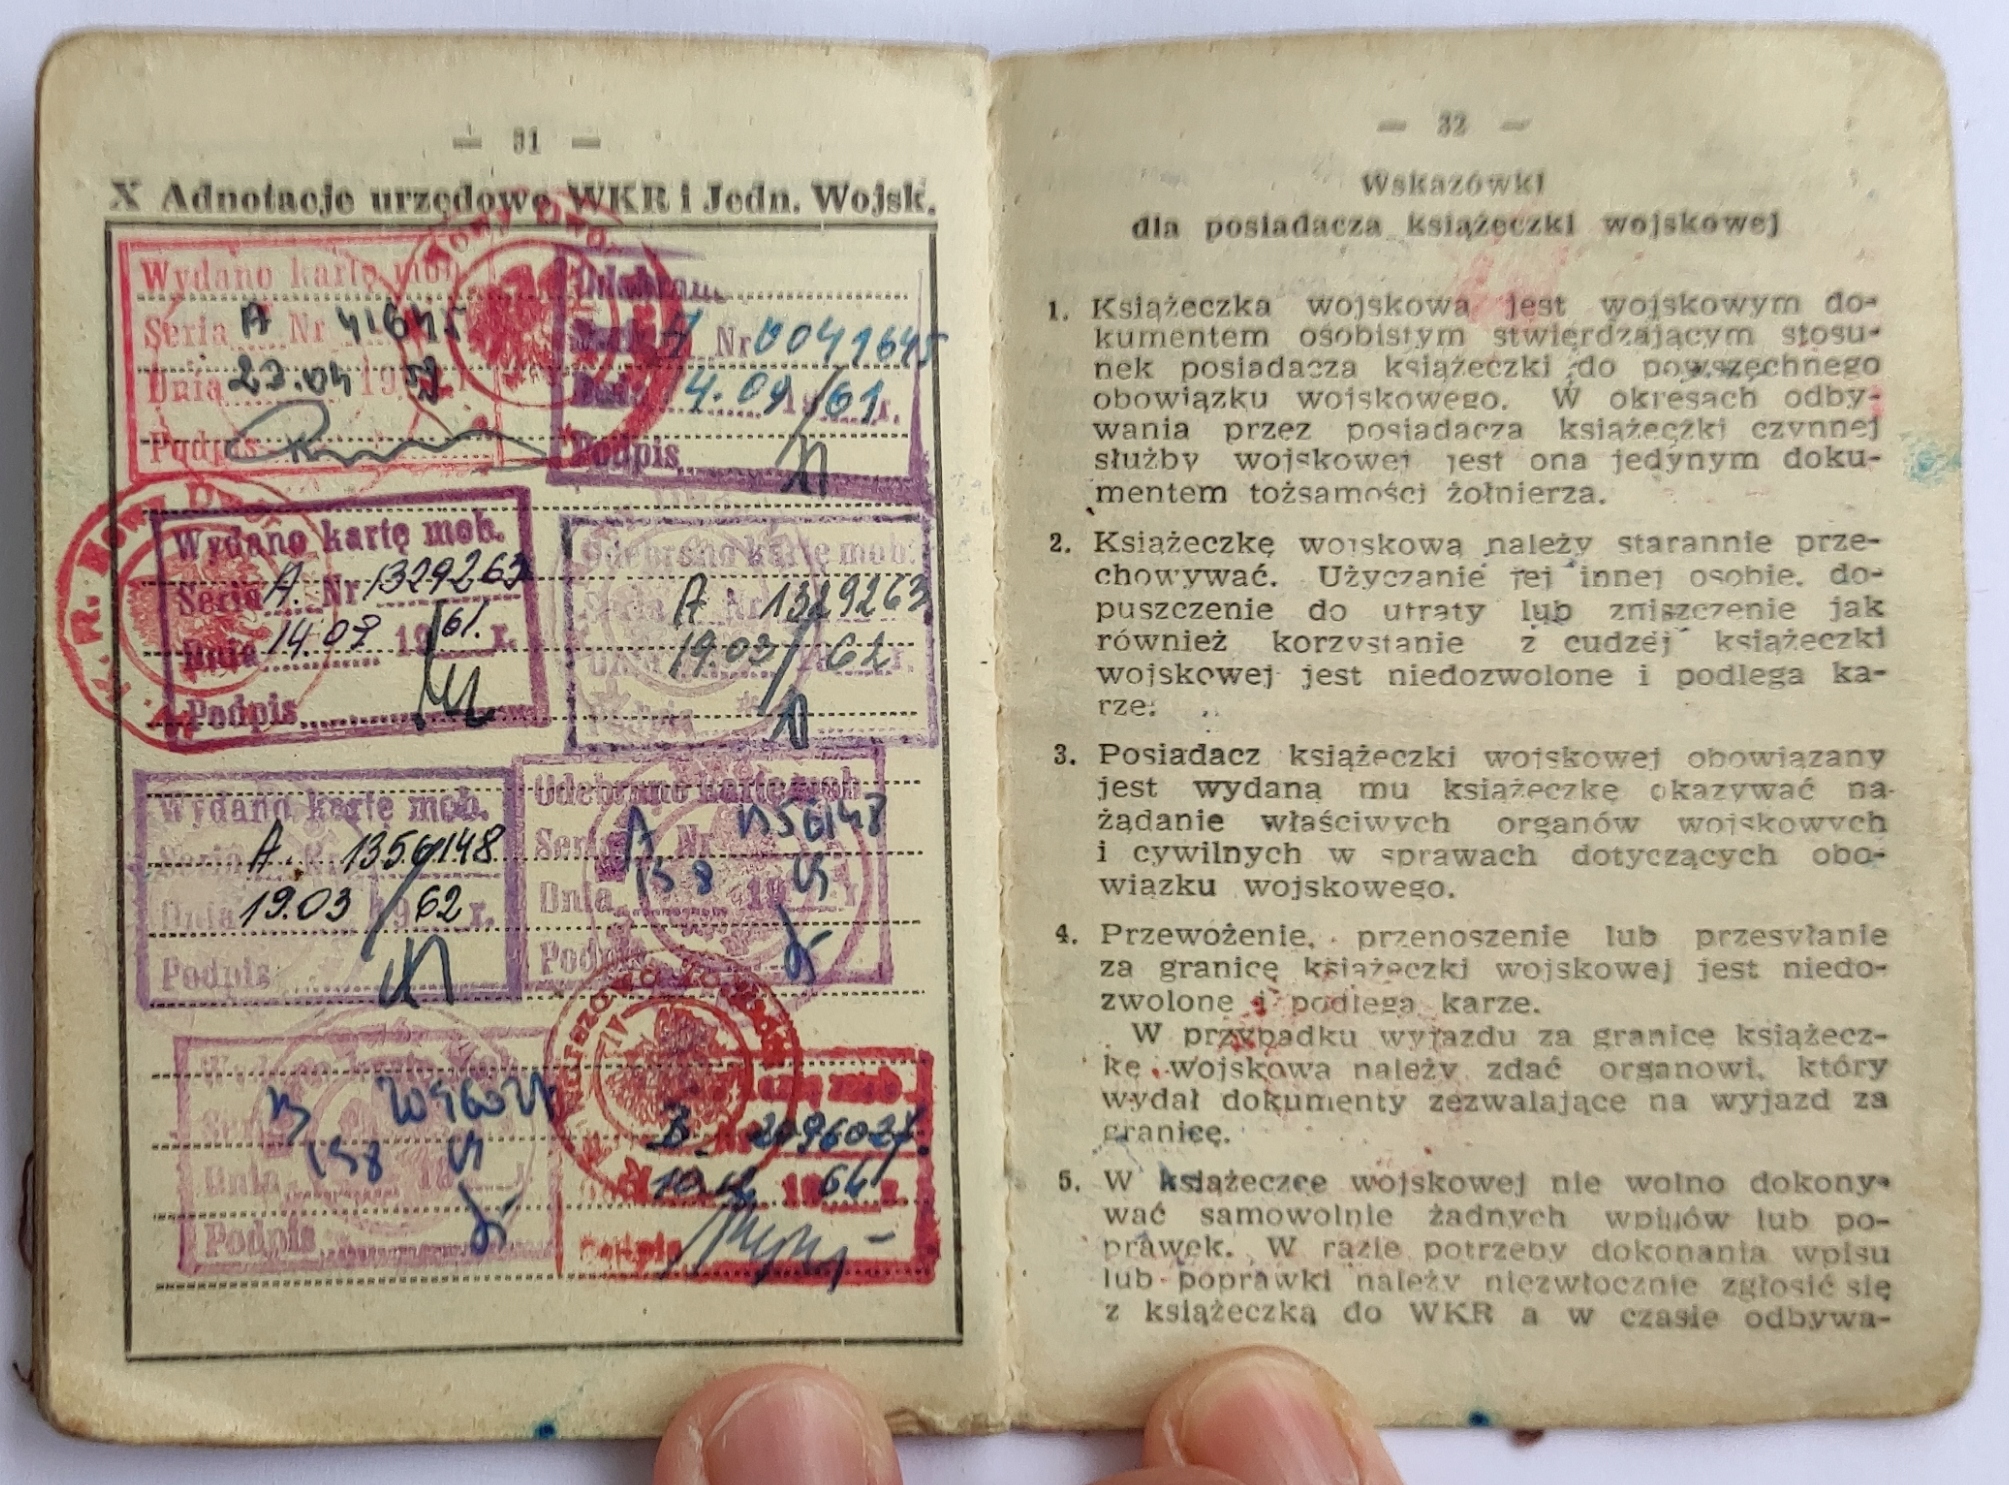 — 31 —
X Adnotacje urzędowe WKR i Jedn. Wojsk.
Wydano kartę mob.
Seria A Nr 41645
Dnia 23.04 19
Podpis
Odebrano
A Nr 0041645
4.09 19 61 r.
Podpis
Wydano kartę mob.
Seria A. Nr 1329263
Dnia 14.09 19 61. r.
Podpis
Odebrano kartę mob.
Seria A Nr 1329263
Dnia 19.03 19 62 r.
Podpis
Wydano kartę mob.
Seria A. Nr 1356148
Dnia 19.03 1962 r.
Podpis
Odebrano kartę mob
Seria A Nr 1356148
Dnia 15 8 19 r
Podpis
Wydano kartę mob.
Seria
Dnia 15 8
Podpis
B 2096027.
10. 19 64 r.
Podpis
— 32 —
Wskazówki
dla posiadacza książeczki wojskowej
1. Książeczka wojskowa jest wojskowym do-
kumentem osobistym stwierdzającym stosu-
nek posiadacza książeczki do powszechnego
obowiązku wojskowego. W okresach odby-
wania przez posiadacza książeczki czynnej
służby wojskowej jest ona jedynym doku-
mentem tożsamości żołnierza.
2. Książeczkę wojskową należy starannie prze-
chowywać. Użyczanie jej innej osobie, do-
puszczenie do utraty lub zniszczenie jak
również korzystanie z cudzej książeczki
wojskowej jest niedozwolone i podlega ka-
rze.
3. Posiadacz książeczki wojskowej obowiązany
jest wydaną mu książeczkę okazywać na
żądanie właściwych organów wojskowych
i cywilnych w sprawach dotyczących obo-
wiązku wojskowego.
4. Przewożenie, przenoszenie lub przesyłanie
za granicę książeczki wojskowej jest niedo-
zwolone i podlega karze.
W przypadku wyjazdu za granicę książecz-
kę wojskową należy zdać organowi, który
wydał dokumenty zezwalające na wyjazd za
granicę.
5. W książeczce wojskowej nie wolno dokony-
wać samowolnie żadnych wpisów lub po-
prawek. W razie potrzeby dokonania wpisu
lub poprawki należy niezwłocznie zgłosić się
z książeczką do WKR a w czasie odbywa-